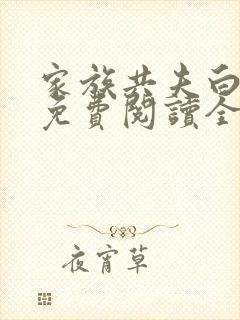 家族共夫白
免費閱讀全
夜宵草